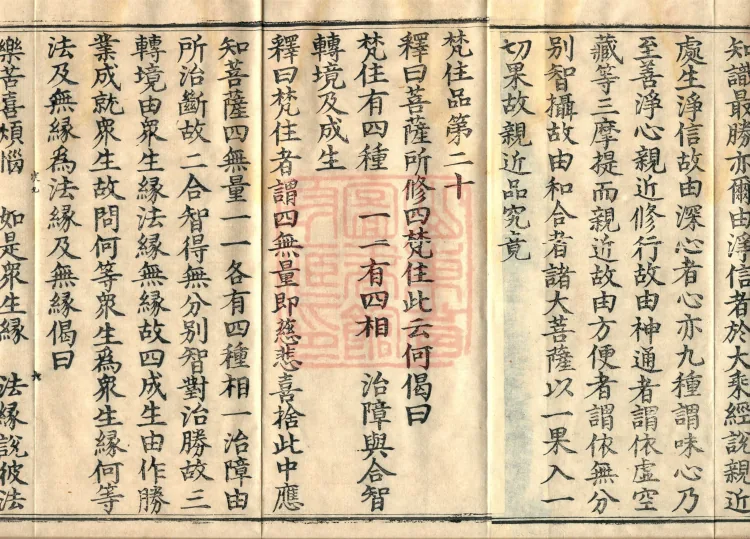 知識最勝亦爾由淨信者於大乘經說親近
處生淨信故由深心者心亦九種謂味心乃
至善淨心親近修行故由神通者謂依虛空
藏等三摩提而親近故由方便者謂依無分
別智攝故由和合者諸大菩薩以一果入一
切果故親近品究竟
梵住品第二十
釋曰菩薩所修四梵住此云何偈曰
梵住有四種　一一有四相　治障與合智
轉境及成生
釋曰梵住者謂四無量即慈悲喜捨此中應
知菩薩四無量一一各有四種相一治障由
所治斷故二合智得無分別智對治勝故三
轉境由衆生緣法緣無緣故四成生由作勝
業成就衆生故問何等衆生為衆生緣何等
法及無緣為法緣及無緣偈曰
樂苦喜煩惱　如是衆生緣　法緣說彼法